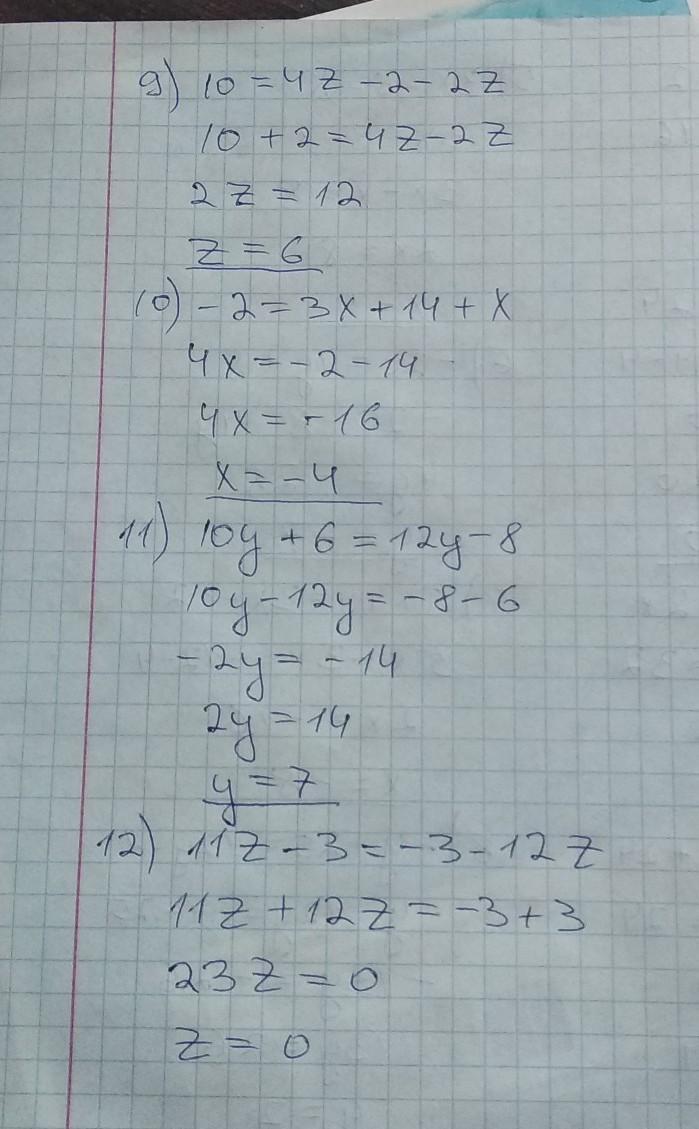 9) 10 = 4z - 2 - 2z
10 + 2 = 4z - 2z
2z = 12
z = 6
10) - 2 = 3x + 14 + x
4x = - 2 - 14
4x = - 16
x = - 4
11) 10y + 6 = 12y - 8
10y - 12y = - 8 - 6
- 2y = - 14
2y = 14
y = 7
12) 11z - 3 = - 3 - 12z
11z + 12z = - 3 + 3
23z = 0
z = 0